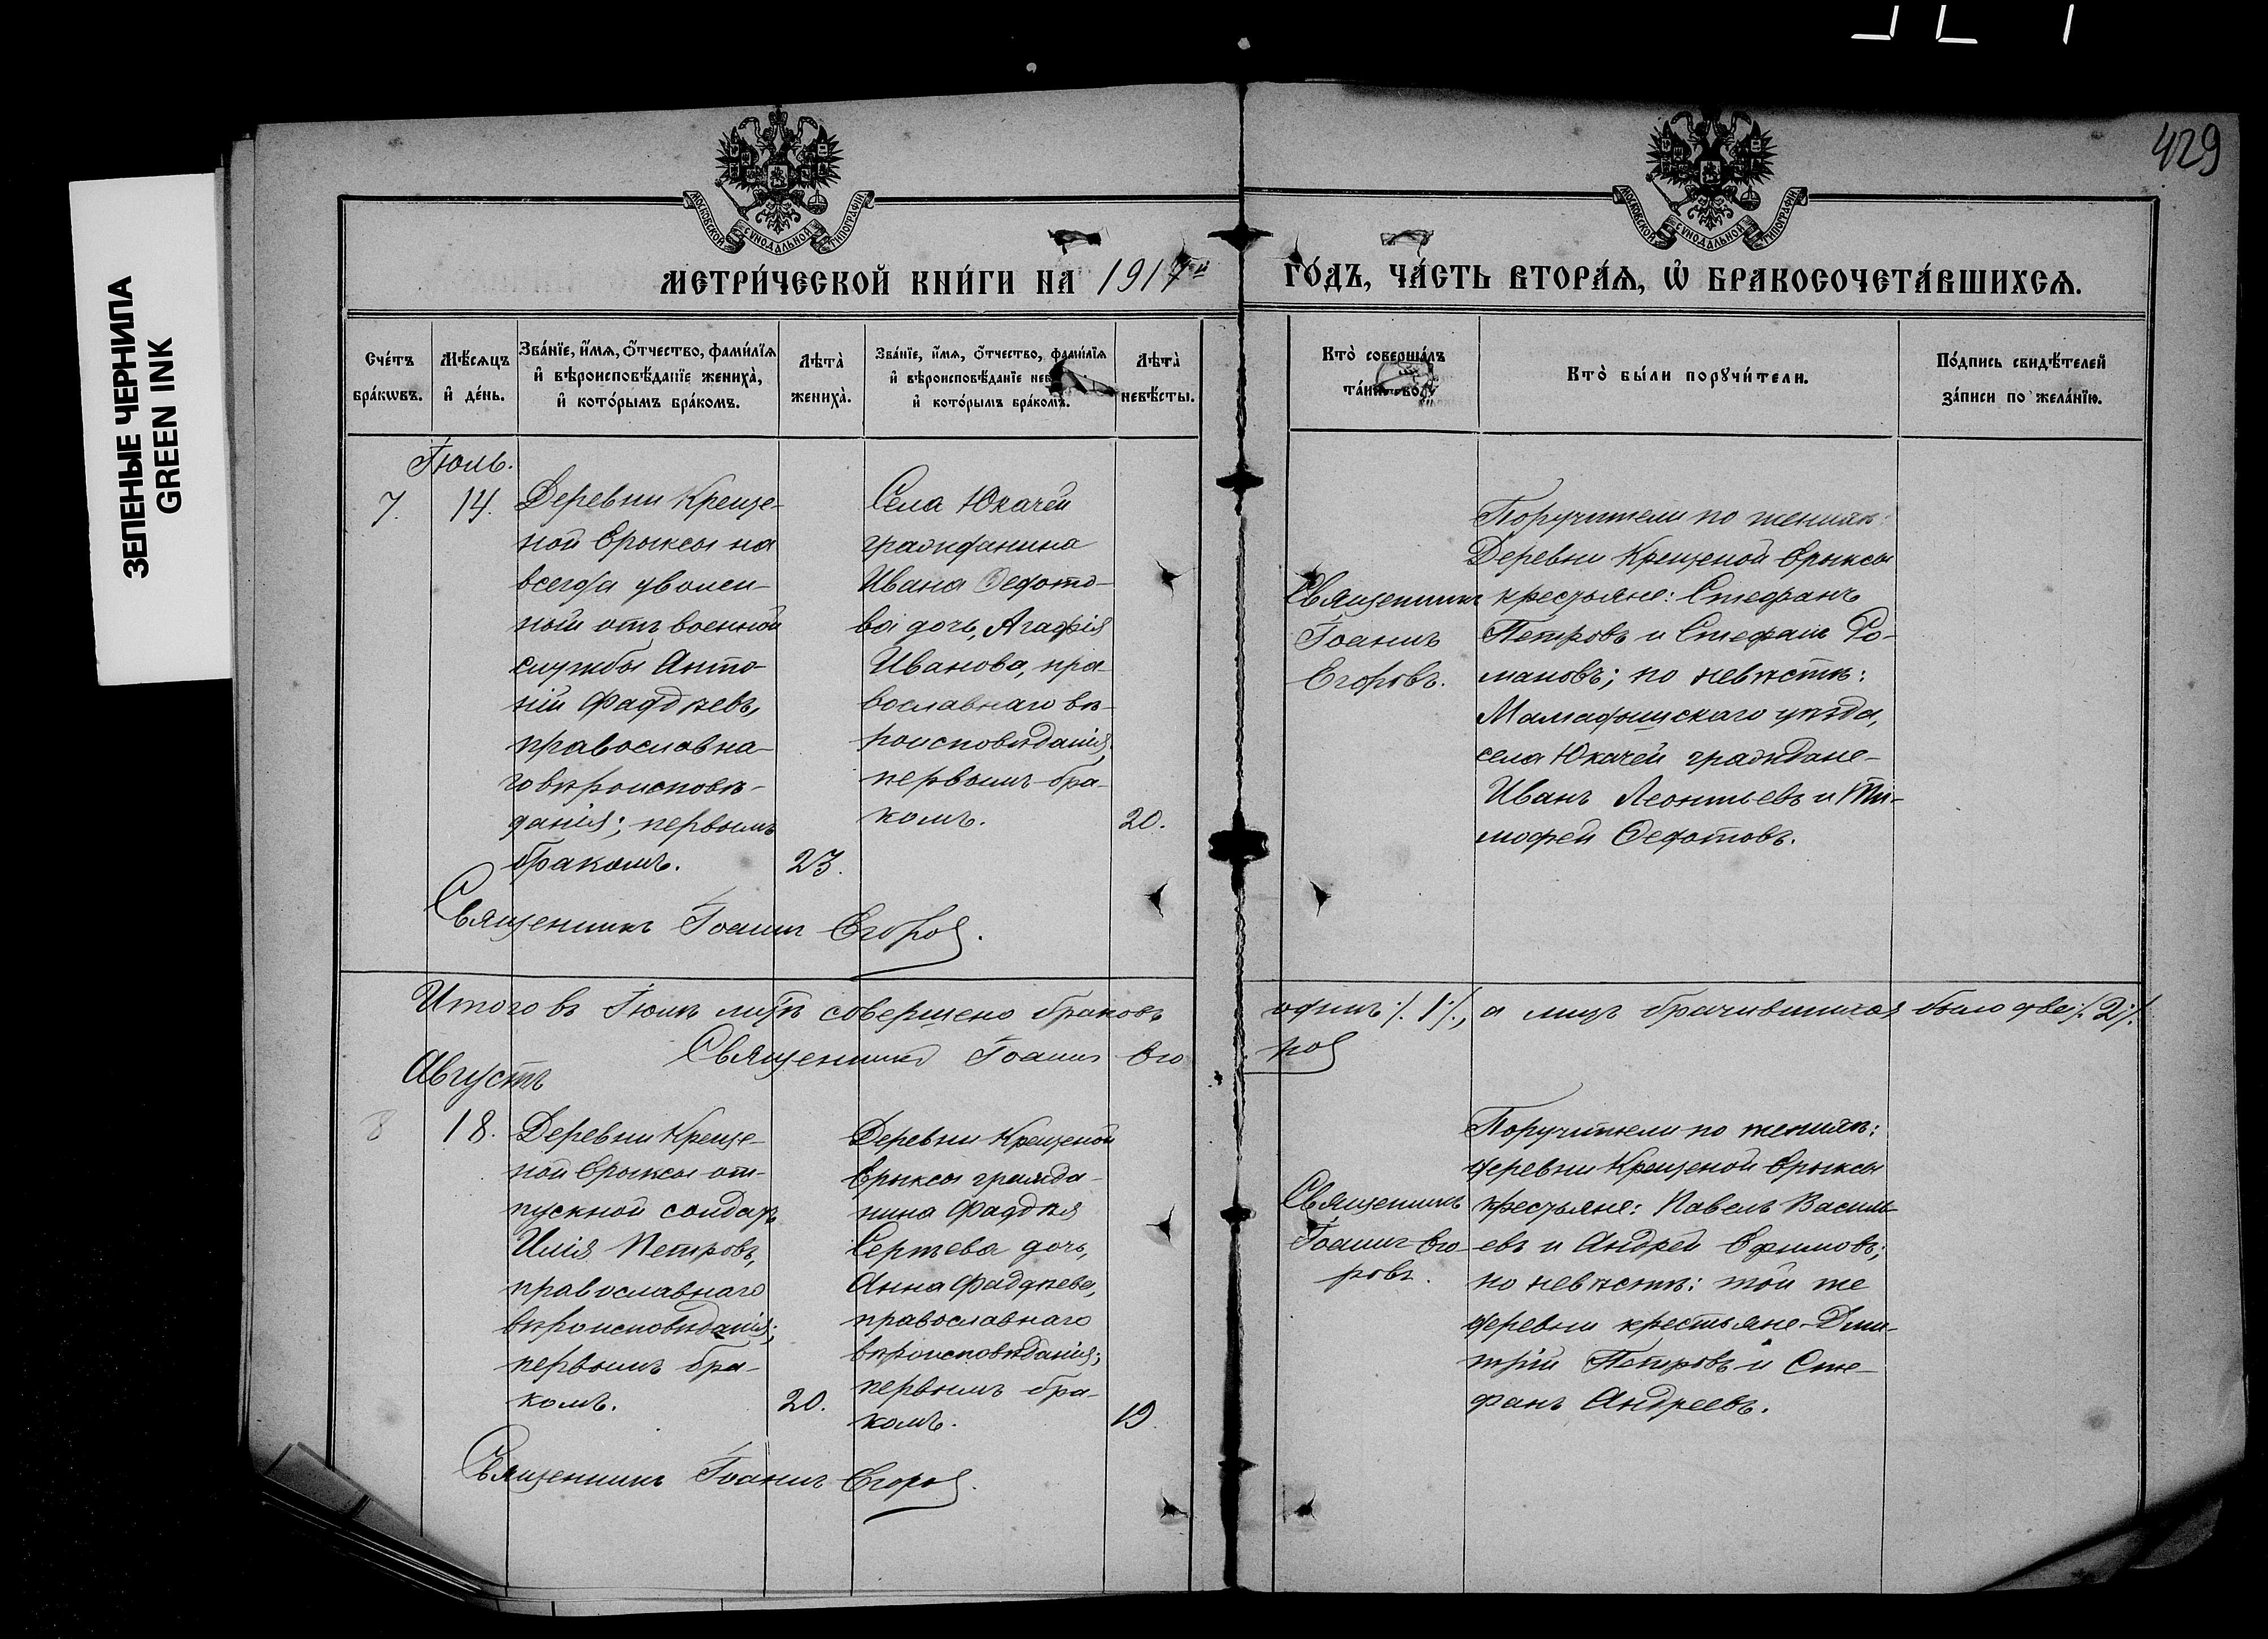 ЗЕЛЕНЫЕ ЧЕРНИЛА
GREEN INK
429
МОСКОВСКОЙ СУНОДАЛЬНОЙ ТИПОГРАФІИ
МОСКОВСКОЙ СУНОДАЛЬНОЙ ТИПОГРАФІИ
МЕТРИ́ЧЕСКОЙ КНИ́ГИ НА 1917й
ГО́ДЪ, ЧА́СТЬ ВТОРА́Ѧ, Ѽ БРАКОСОЧЕТА́ВШИХСѦ.
Сче́тъ бра́кѡвъ.
Мѣ́сяцъ и҆ де́нь.
Зва́нїе, и҆́мѧ, о҆́тчество, фами́лїѧ
и҆ вѣроисповѣ́данїе жениха̀,
и҆ кото́рымъ бра́комъ.
Лѣта̀ жениха̀.
Зва́нїе, и҆́мѧ, о҆́тчество, фами́лїѧ
и҆ вѣроисповѣ́данїе нев
и҆ кото́рымъ бра́комъ.
Лѣта̀ невѣ́сты.
Кто̀ соверша́лъ
Кто̀ бы́ли порꙋчи́тели.
По́дпись свидѣ́телей
за́писи по жела́нїю.
Іюль.
7.
14.
Деревни Креще-
ной Ерыксы на
всегда уволен-
ный отъ военной
службы Анто-
ній Фаддѣевъ,
православна-
го вѣроисповѣ-
данія; первымъ
бракомъ.
23.
Села Юкачей
гражданина
Ивана Ѳедото-
ва дочь, Агафія
Иванова, пра-
вославнаго вѣ-
роисповѣданія,
первымъ бра-
комъ.
20.
Священникъ
Іоаннъ
Егоровъ.
Поручители по женихѣ:
Деревни Крещеной Ерыксы
крестьяне: Стефанъ
Петровъ и Стефанъ Ро-
мановъ; по невѣстѣ:
Мамадышскаго уѣзда,
села Юкачей граждане-
Иванъ Леонтьевъ и Ти-
мофей Ѳедотовъ.
Священникъ Іоаннъ Егоров.
Итого въ Іюлѣ м҃цѣ совершено браковъ одинъ /.1/., а лицъ брачившихся было два /.2/.
Священникъ Іоаннъ Его ров
Августъ
8
18.
Деревни Креще-
ной Ерыксы от-
пускной солдатъ
Илія Петровъ,
православнаго
вѣроисповѣданія;
первымъ бра-
комъ.
20.
Деревни Крещеной
Ерыксы гражда-
нина Фаддѣя
Сергѣева дочь,
Анна Фаддѣева,
православнаго
вѣроисповѣданія;
первымъ бра-
комъ.
19.
Священникъ
Іоаннъ Его-
ровъ.
Поручители по женихѣ:
деревни Крещеной Ерыксы
крестьяне: Павелъ Василь-
евъ и Андрей Ефимовъ;
по невѣстѣ: той же
деревни крестьяне-Дми-
трій Петровъ и Сте-
фанъ Андреевъ.
Священникъ Іоаннъ Егоров.